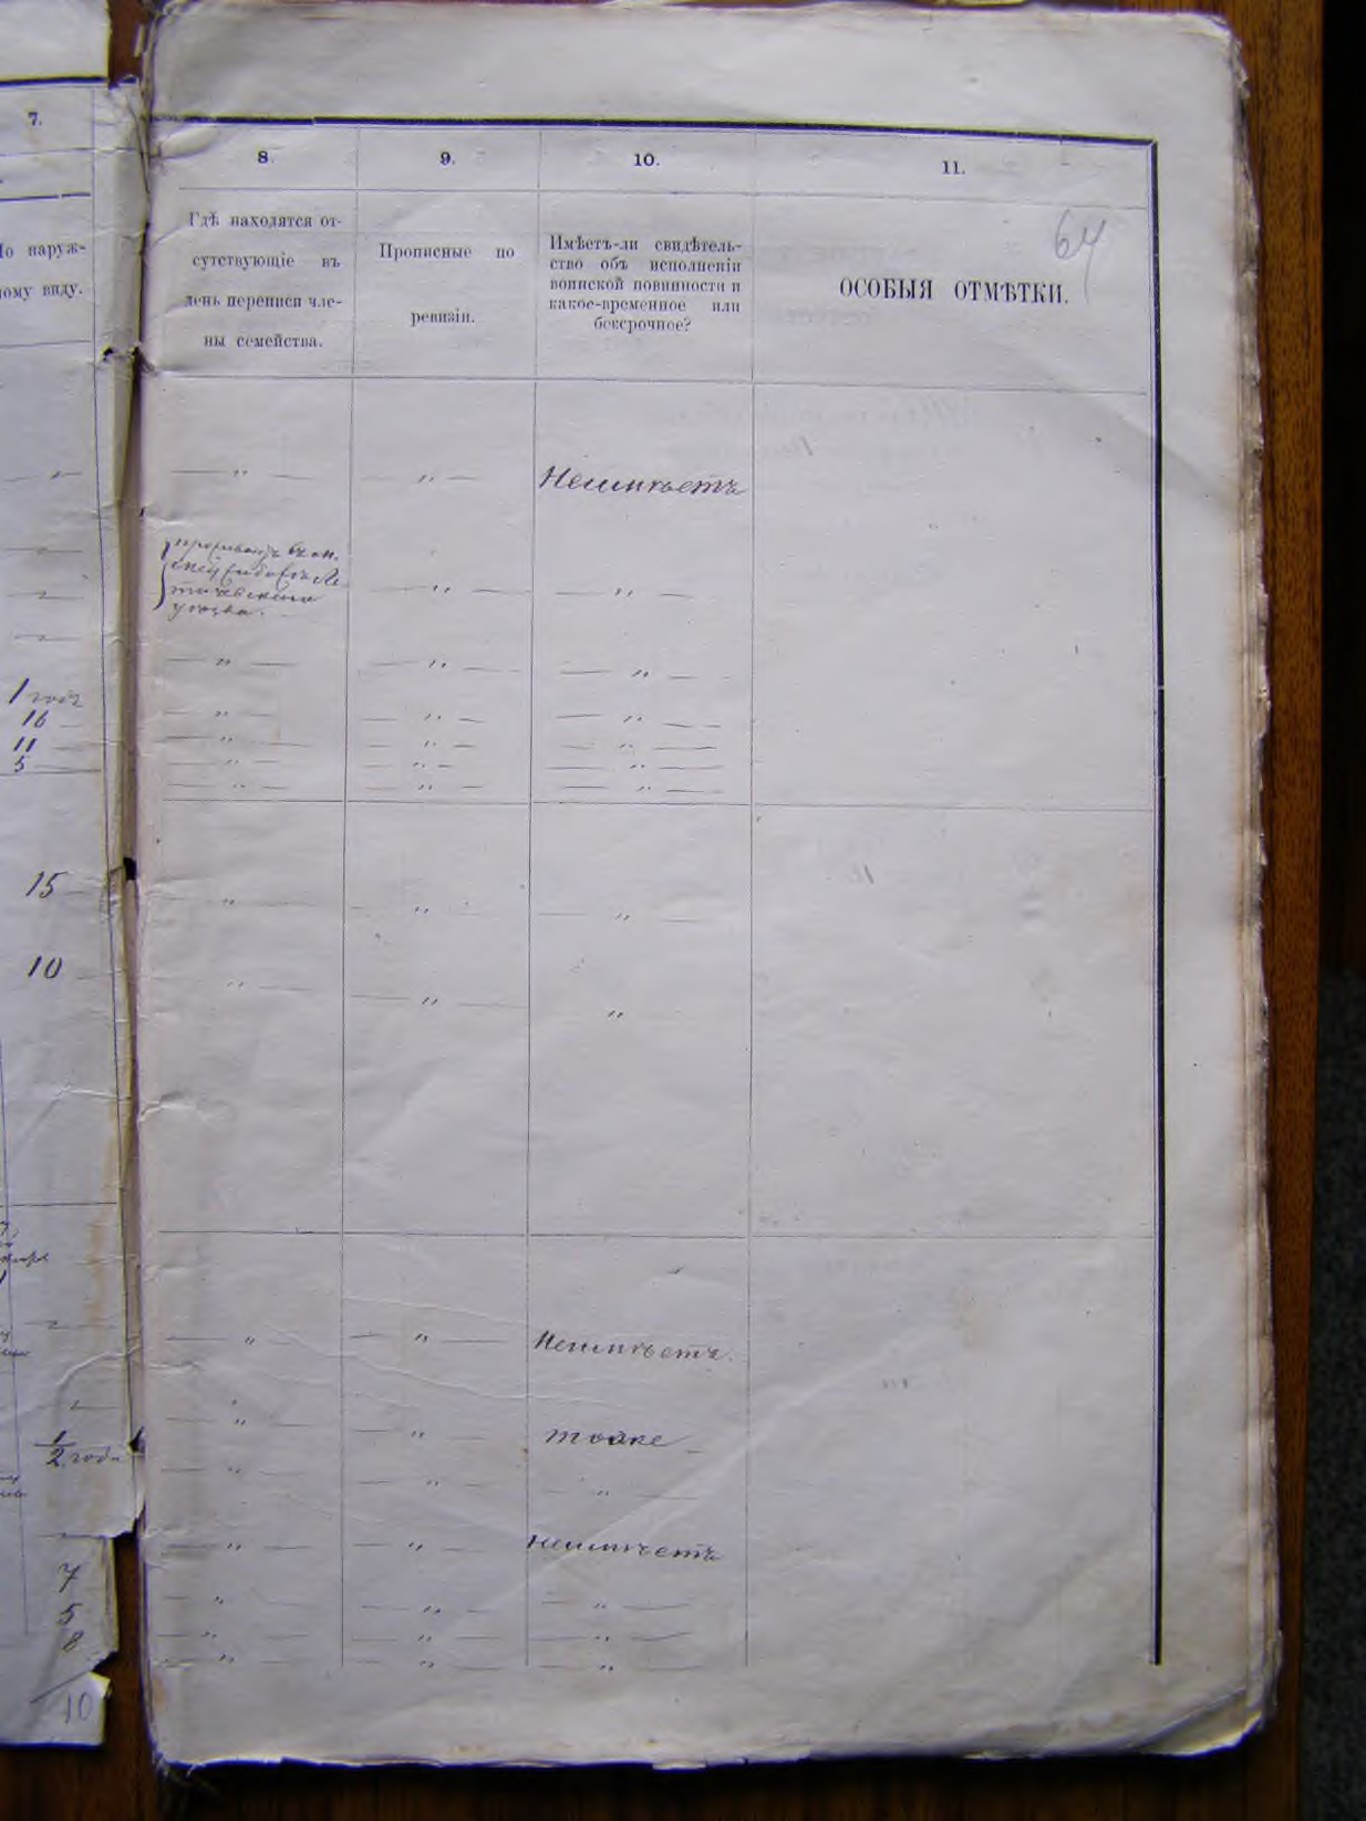 7.
8
9.
10.
11.
64
По наруж-
ному виду.
Гдѣ находятся от-
сутствующіе въ
день переписи чле-
ны семейства.
Прописные по
ревизіи.
Имѣетъ-ли свидѣтель-
ство объ исполненіи
воинской повинности и
какое-временное или
безсрочное?
ОСОБЫЯ ОТМѢТКИ.
— " — — " — — " — Неимѣетъ
уѣзда.
— " — — " —
— " — — " — — " —
1 годъ
16 — " — — " — — " —
11 — " — — " — — " —
5 — " — — " — — " —
— " — — " — — " —
15 — " — — " — — " —
10 — " — — " — "
— " — — " — Неимѣетъ.
— " — — " — тоже —
1/2 года — " — — " — — " —
— " — — " — неимѣетъ
7 — " — — " — — " —
5 — " — — " — — " —
8 — " — — " — — " —
10